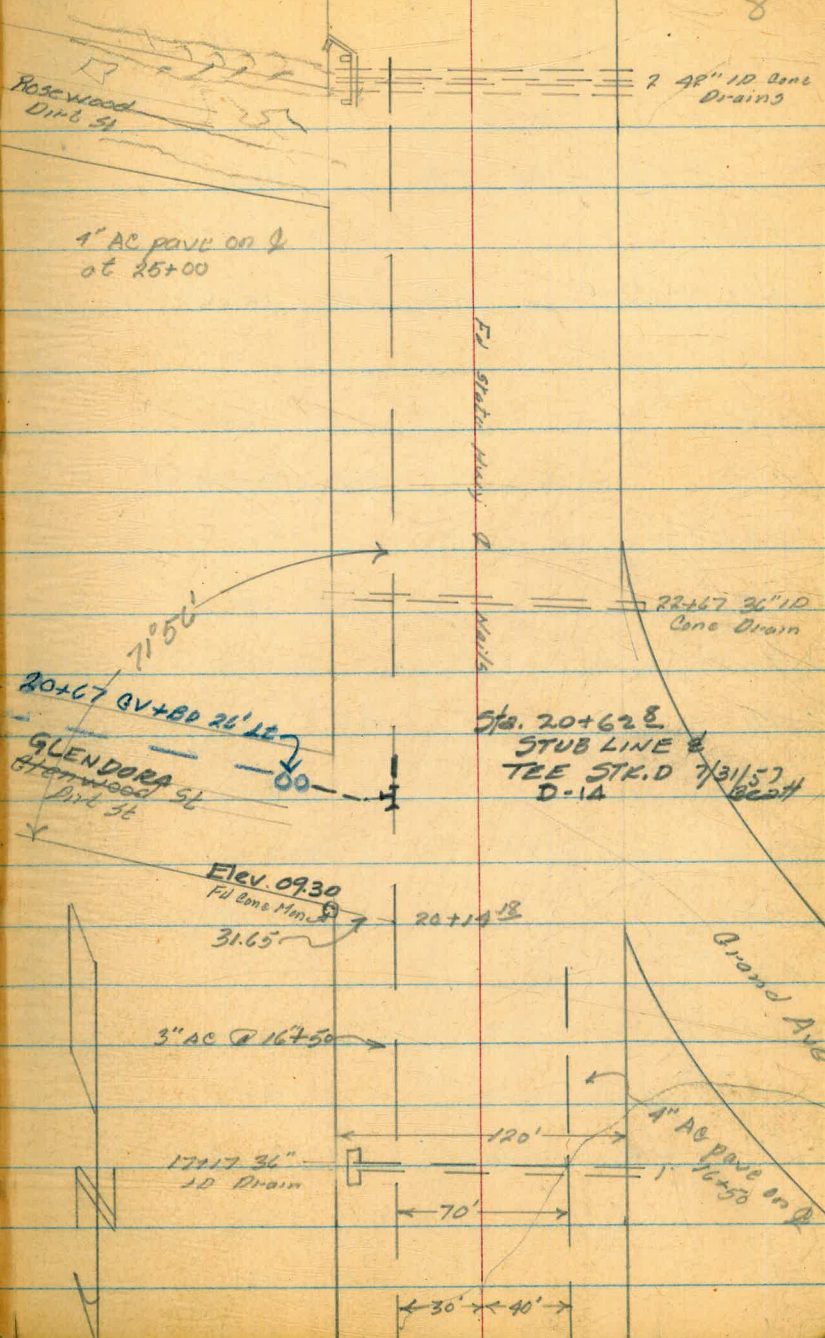 8
2 48" ID Conc
Drains
Rosewood
Dirt St
4" AC pave on ℄
at 25+00
Fd State Hwy ℄ Nails
71°56'
22+67 36" ID
Conc Drain
20+67 GV+BO 26' Lt
GLENDORA
Glenwood St
Dirt St
Sta. 20+62 8
STUB LINE &
TEE STK.D 7/31/57
D-1A Scott
Elev. 09.30
Fd Conc Mon
31.65
20+14 18
Grand Ave
3" AC @ 16+50
120'
4" AC pave on ℄
16+50
17+17 36"
ID Drain
70'
N
30' 40'